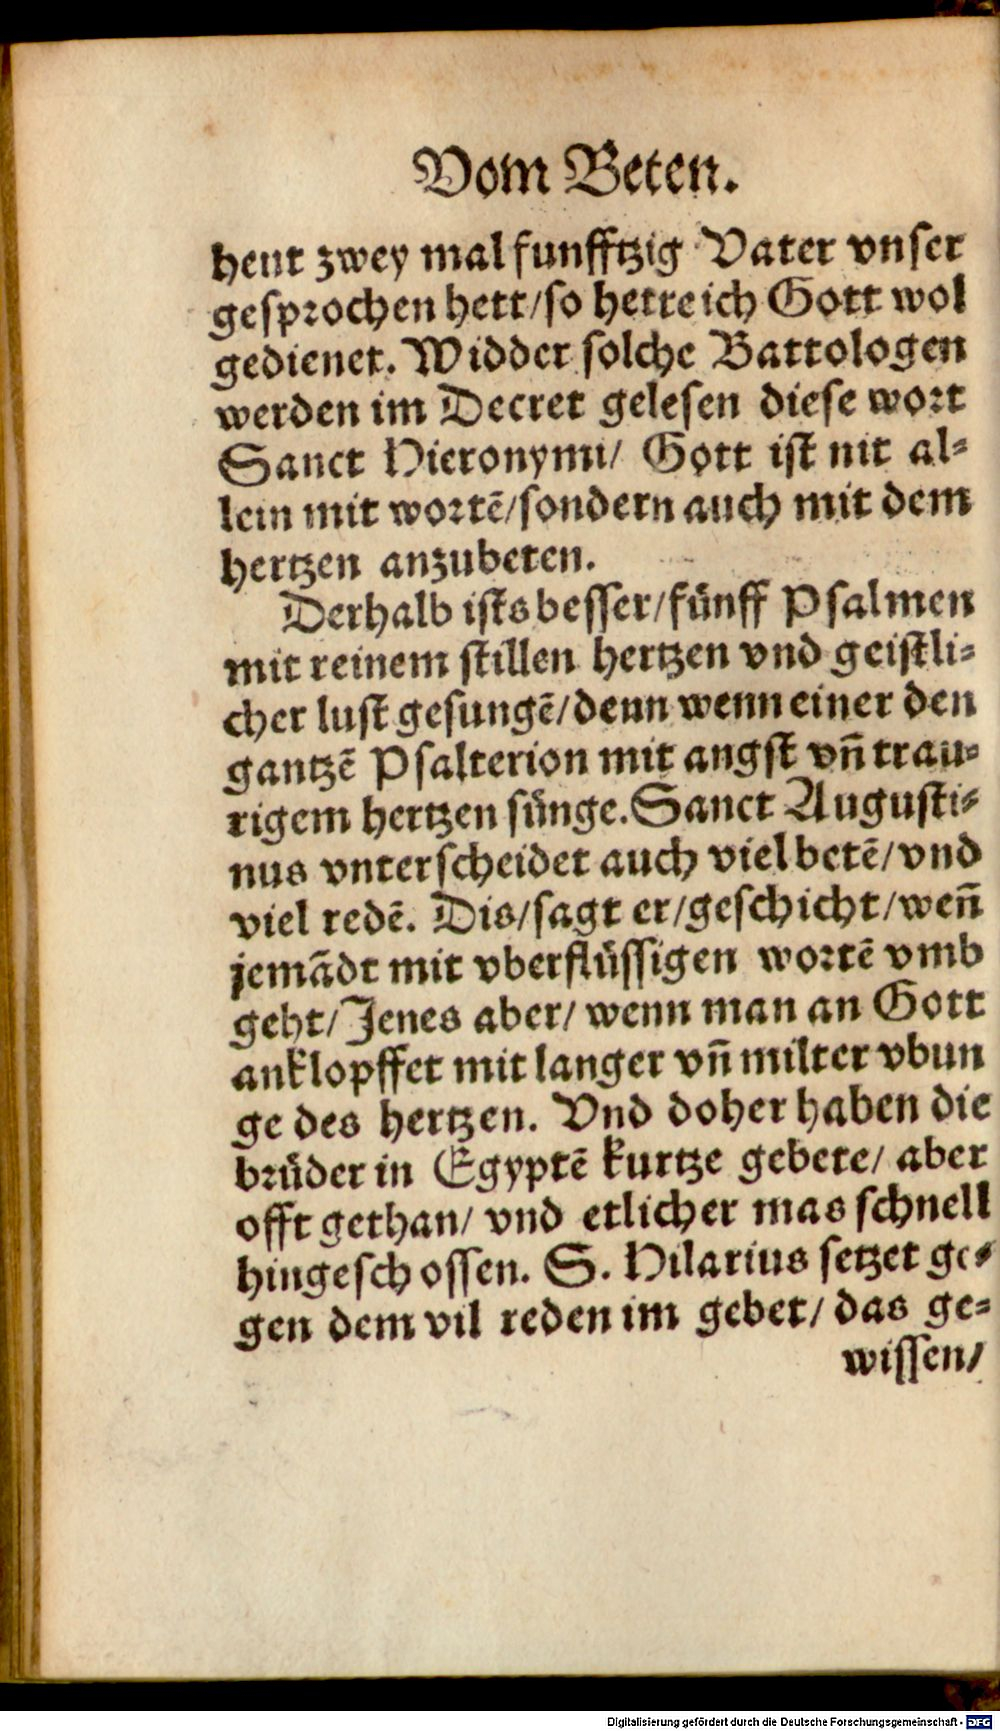 Vom Beten.
heut zwey mal funfftzig Vater vnser
gesprochen hett/so hette ich Gott wol
gedienet. Widder solche Battologen
werden im Decret gelesen diese wort
Sanct Hieronymi/ Gott ist nit al⸗
lein mit wortē/sondern auch mit dem
hertzen anzubeten.
Derhalb ists besser/fünff Psalmen
mit reinem stillen hertzen vnd geistli⸗
cher lust gesungē/denn wenn einer den
gantzē Psalterion mit angst vn̄ trau⸗
rigem hertzen sünge. Sanct Augusti⸗
nus vnterscheidet auch viel betē/vnd
viel redē. Dis/sagt er/geschicht/wen̄
jemādt mit vberflüssigen wortē vmb
geht/Jenes aber/ wenn man an Gott
anklopffet mit langer vn̄ milter vbun
ge des hertzen. Vnd doher haben die
brüder in Egyptē kurtze gebete/ aber
offt gethan/ vnd etlicher mas schnell
hingeschossen. S. Hilarius setzet ge⸗
gen dem vil reden im gebet/ das ge⸗
wissen/
Digitalisierung gefördert durch die Deutsche Forschungsgemeinschaft - DFG